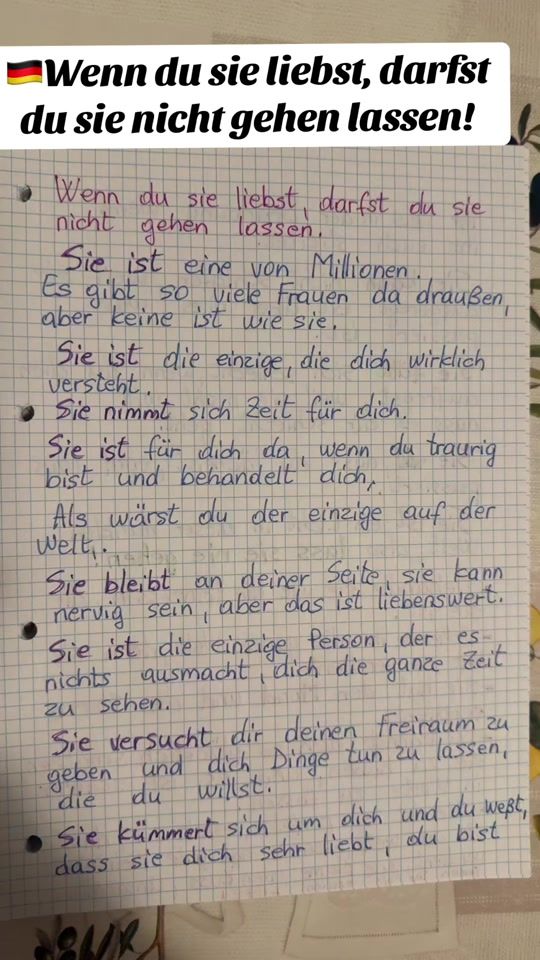 🇩🇪Wenn du sie liebst, darfst
du sie nicht gehen lassen!
Wenn du sie liebst, darfst du sie
nicht gehen lassen.
Sie ist eine von Millionen.
Es gibt so viele Frauen da draußen,
aber keine ist wie sie.
Sie ist die einzige, die dich wirklich
versteht.
Sie nimmt sich Zeit für dich.
Sie ist für dich da, wenn du traurig
bist und behandelt dich,
Als wärst du der einzige auf der
Welt,.
Sie bleibt an deiner Seite, sie kann
nervig sein, aber das ist liebenswert.
Sie ist die einzige Person, der es
nichts ausmacht, dich die ganze Zeit
zu sehen.
Sie versucht dir deinen Freiraum zu
geben und dich Dinge tun zu lassen,
die du willst.
Sie kümmert sich um dich und du weßt,
dass sie dich sehr liebt, du bist